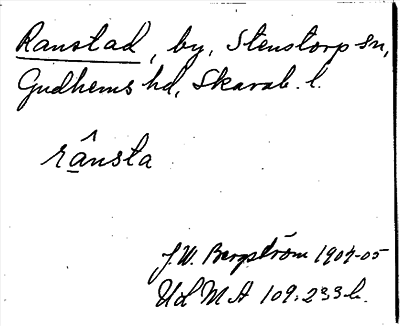 Ranstad, by, Stenstorp sn,
Gudhems hd, Skarab. l.
rânsta
J. W. Bergström 1904-05
Ud M A 109:233 b.